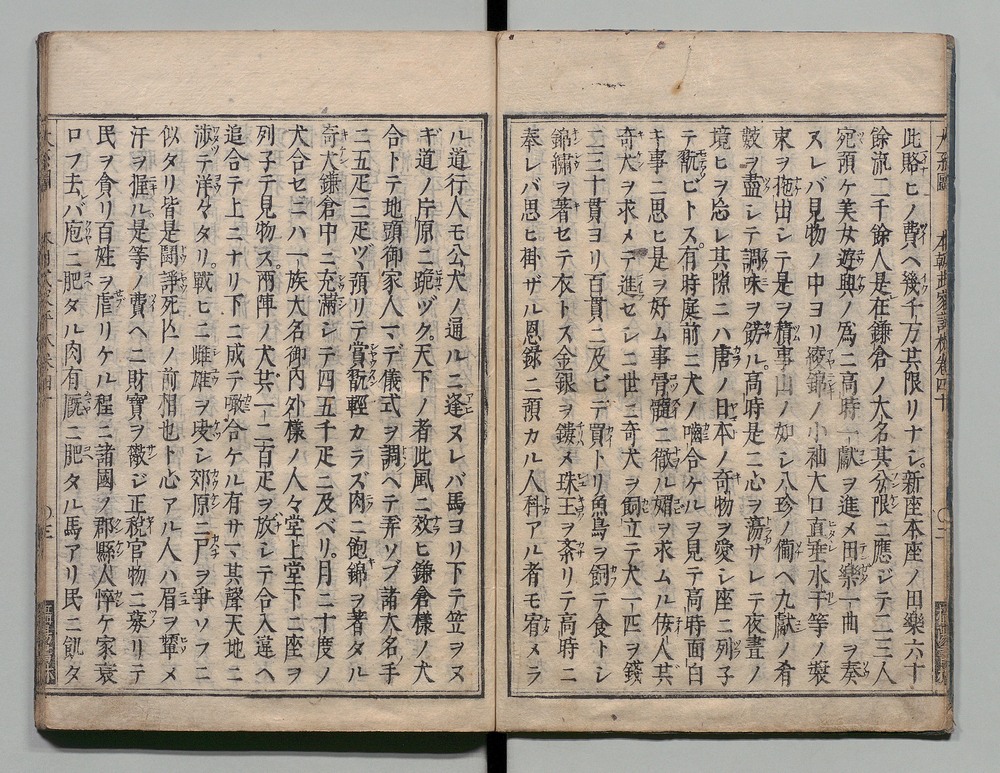 此賂ヒノ費ヘ幾千万其限リナシ。新座本座ノ田樂六十
餘流二千餘人是在鎌倉ノ大名其分限ニ應ジテ二三人
宛預ケ美女遊興ノ爲ニ高時一獻ヲ進メ田樂一曲ヲ奏
スレバ見物ノ中ヨリ綾錦ノ小袖大口直垂水干等ノ裝
束ヲ拖出シテ是ヲ積事山ノ如シ八珍ノ備ヘ九獻ノ肴
數ヲ盡シテ調味ヲ餝ル。高時是ニ心ヲ蕩サレテ夜晝ノ
境ヒヲ忘レ其隙ニハ唐ノ日本ノ奇物ヲ愛シ座ニ列子
テ翫ビトス。有時庭前ニ犬ノ噛合ケルヲ見テ高時面白
キ事ニ思ヒ是ヲ好ム事骨髓ニ徹ル媚ヲ求ムル侫人其
奇犬ヲ求メテ進セシニ世ニ奇犬ヲ飼立テ犬一匹ヲ錢
二三十貫ヨリ百貫ニ及ビテ買トリ魚鳥ヲ飼テ食トシ
錦繡ヲ著セテ衣トス金銀ヲ鏤メ珠玉ヲ系リテ高時ニ
奉レバ思ヒ掛ザル恩録ニ預カル人科アル者モ宥メラ
ル道行人モ公犬ノ通ルニ逢ヌレバ馬ヨリ下テ笠ヲヌ
ギ道ノ片原ニ跪ヅク。天下ノ者此風ニ效ヒ鎌倉樣ノ犬
合トテ地頭御家人マデ儀式ヲ調ヘテ弄ソブ諸大名手
ニ五疋三疋ヅヽ預リテ賞翫輕カラズ肉ニ飽錦ヲ著タル
奇犬鎌倉中ニ充滿シテ四五千疋ニ及ベリ。月ニ十度ノ
犬合セニハ一族大名御内外樣ノ人々堂上堂下ニ座ヲ
列子テ見物ス。兩陣ノ犬共一二百疋ヲ放シテ合入違ヘ
追合テ上ニナリ下ニ成テ噉合ケル有サマ其聲天地ニ
渉テ洋々タリ。戰ヒニ雌雄ヲ決シ郊原ニ尸ヲ爭ソフニ
似タリ皆是鬪諍死亡ノ前相也ト心アル人ハ眉ヲ顰メ
汗ヲ握ル是等ノ費ヘニ財寶ヲ散ジ正税官物ニ募リテ
民ヲ貪リ百姓ヲ虐リケル程ニ諸國ノ郡縣人悴ケ家衰
ロフ去バ庖ニ肥タル肉有厩ニ肥タル馬アリ民ニ飢タ